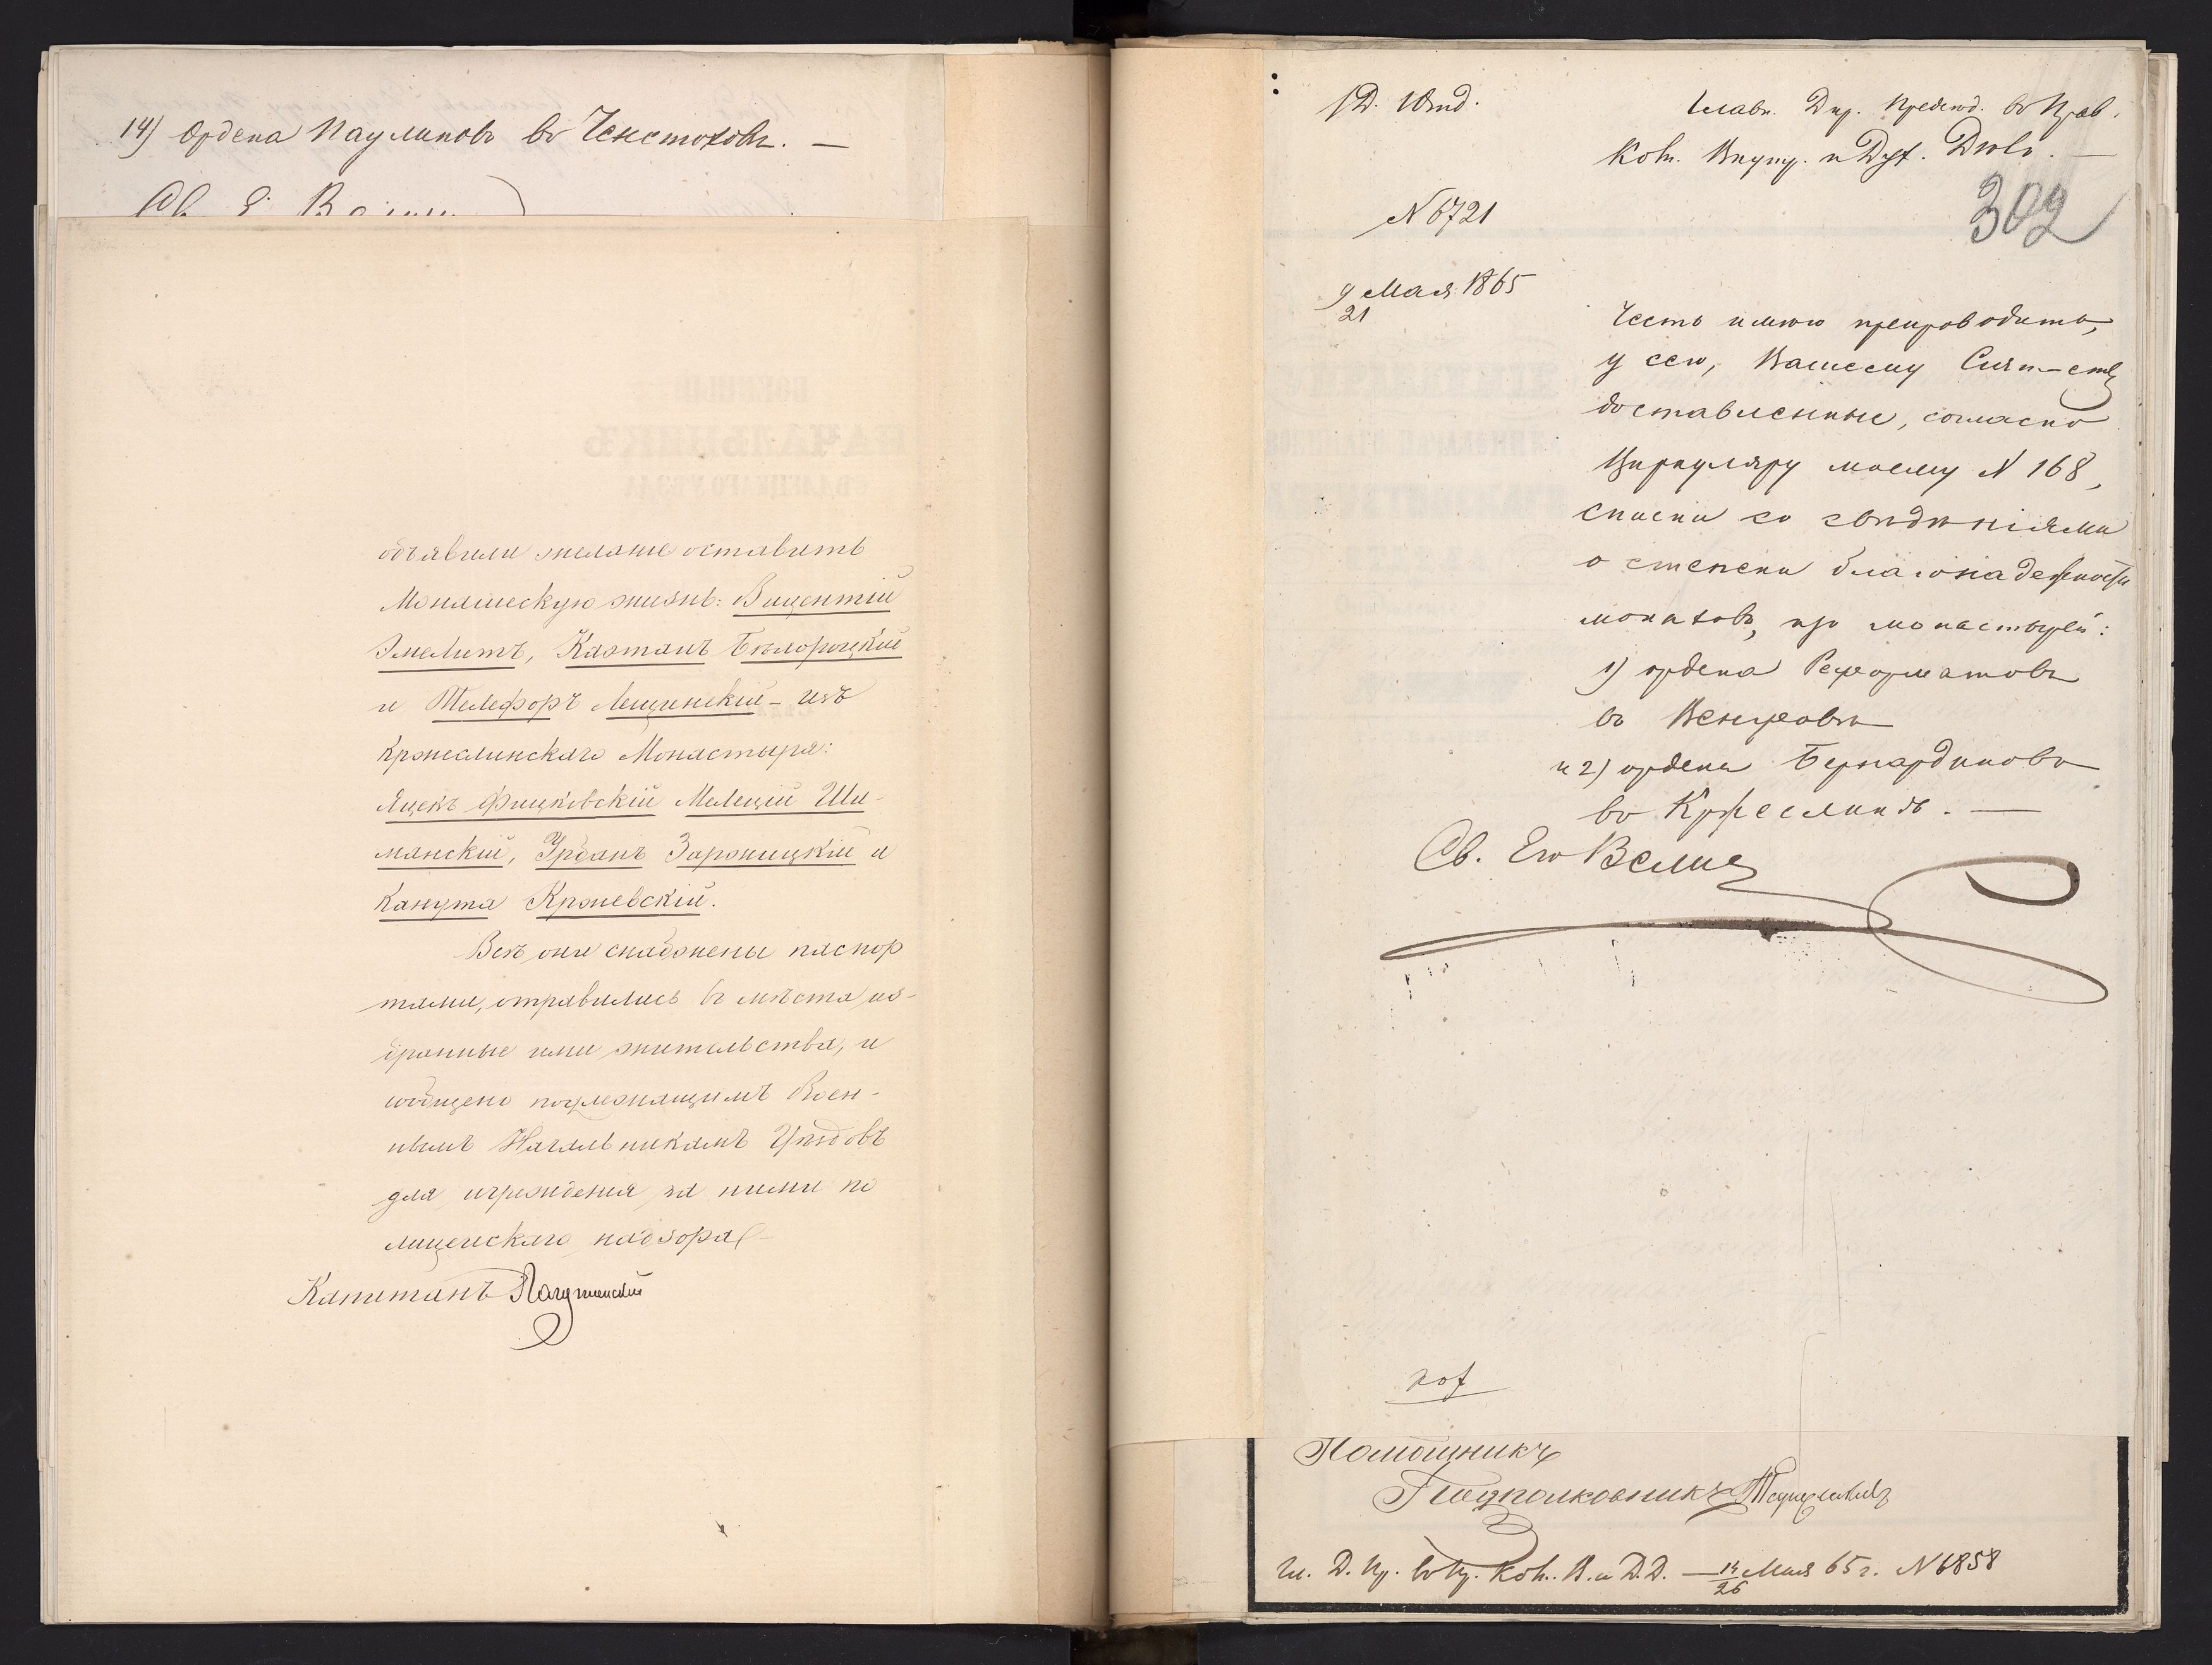 14) Ордена Паулиновъ въ Ченстоховѣ. —
объявили желаніе оставить
Монашескую жизнь: Вицентій
Каэтанъ Бѣлорыцкій
и Телефоръ Лещинскій – изъ
Кржеслинскаго Монастыря:
Яцекъ Фицковскій Мелецій Ши-
манскій, Урбанъ Заржицкій и
Канута Кржевскій.
Всѣ они снабжены паспор
тами, отправились въ мѣста из-
бранные ими жительства, и
сообщено подлежащимъ Воен-
нымъ Начальникамъ Уѣздовъ
для учрежденія за ними по
лицейскаго надзора
Капитанъ
1 Отд.
Главн. Дир. Предсѣд. въ Прав.
Ком. Внутр. и Дух. Дѣлъ. —
302
N 6721
9 Мая 1865
21
Честь имѣю препроводить,
у сего, Вашему Сіят-ству
доставленные, согласно
Циркуляру моему N 168,
списки со свѣдѣніями
о степени благонадежности
монаховъ, изъ монастырей:
1) ордена Реформатовъ
въ Венгровѣ
и 2) ордена Бернардиновъ
въ Кржеслинѣ. —
Св. Его Велич
Помощникъ
Подполковникъ
Гл. Д. Пр. въ Пр. Ком. В. и Д. Д. — 14/26 Мая 65 г. N 6858